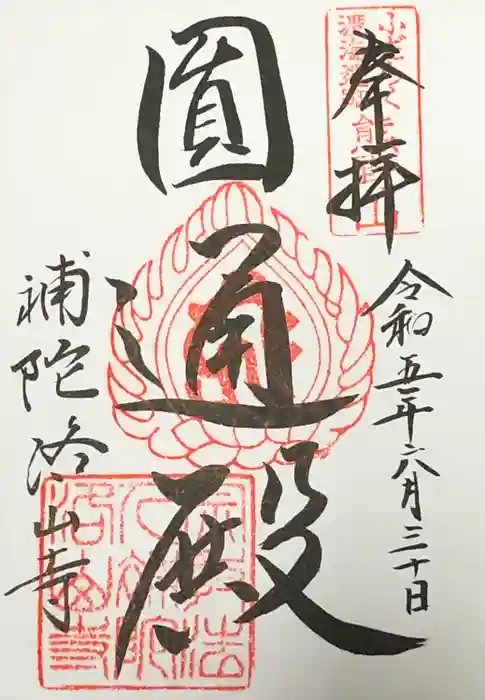 奉拝
令和五年六月三十日
圓通殿
補陀洛山寺